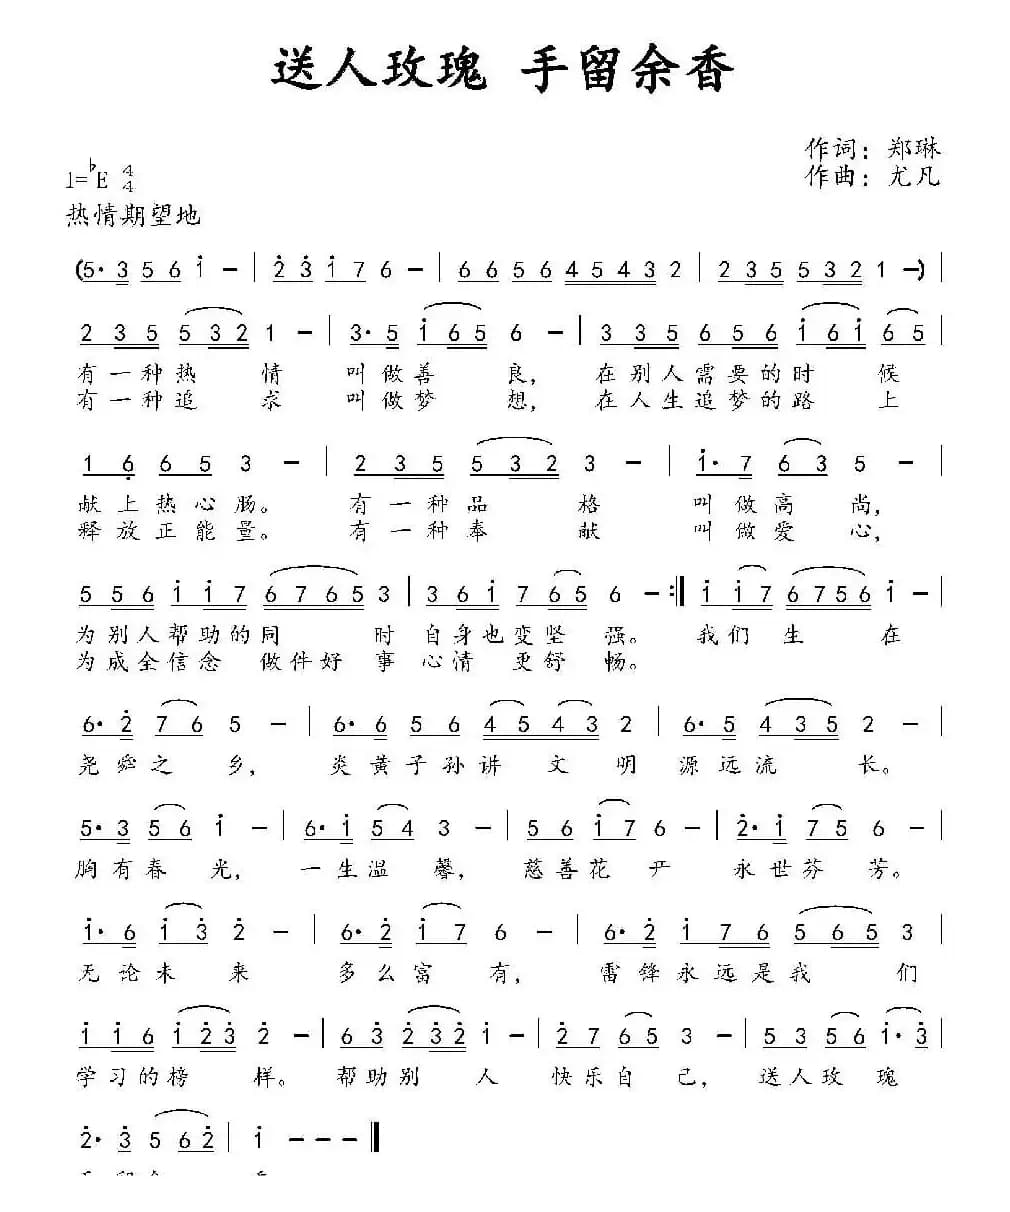 送人玫瑰 手留余香
作词：郑琳
作曲：尤凡
1=♭E 4/4
热情期望地
(5· 3 5 6 i̇ － | 2̇ 3̇ i̇ 7 6 － | 6 6 5 6 4 5 4 3 2 | 2 3 5 5 3 2 1 －) |
2 3 5 5 3 2 1 － | 3· 5 i̇ 6 5 6 － | 3 3 5 6 5 6 i̇ 6 i̇ 6 5 |
有一种热 情 叫做善 良， 在别人需要的时 候
有一种追 求 叫做梦 想， 在人生追梦的路 上
1 6̣ 6 5 3 － | 2 3 5 5 3 2 3 － | i̇· 7 6 3 5 － |
献上热心肠。 有一种品 格 叫做高 尚，
释放正能量。 有一种奉 献 叫做爱 心，
5 5 6 i̇ i̇ 7 6 7 6 5 3 | 3 6 i̇ 7 6 5 6 － :‖ i̇ i̇ 7 6 7 5 6 i̇ － |
为别人帮助的同 时 自身也变坚 强。 我们生 在
为成全信念 做件好 事 心情更舒 畅。
6· 2̇ 7 6 5 － | 6· 6 5 6 4 5 4 3 2 | 6· 5 4 3 5 2 － |
尧舜之 乡， 炎黄子孙讲 文 明 源远流 长。
5· 3 5 6 i̇ － | 6· i̇ 5 4 3 － | 5 6 i̇ 7 6 － | 2̇· i̇ 7 5 6 － |
胸有春 光， 一生温 馨， 慈善花 开 永世芬 芳。
i̇· 6 i̇ 3̇ 2̇ － | 6· 2̇ i̇ 7 6 － | 6· 2̇ i̇ 7 6 5 6 5 3 |
无论未 来 多么富 有， 雷锋永远是我 们
i̇ i̇ 6 i̇ 2̇ 3̇ 2̇ － | 6 3̇ 2̇ 3̇ 2̇ i̇ － | 2̇ 7 6 5 3 － | 5 3 5 6 i̇· 3̇ |
学习的榜 样。 帮助别 人 快乐自 己， 送人玫 瑰
2̇· 3̇ 5 6 2̇ | i̇ － － － ‖